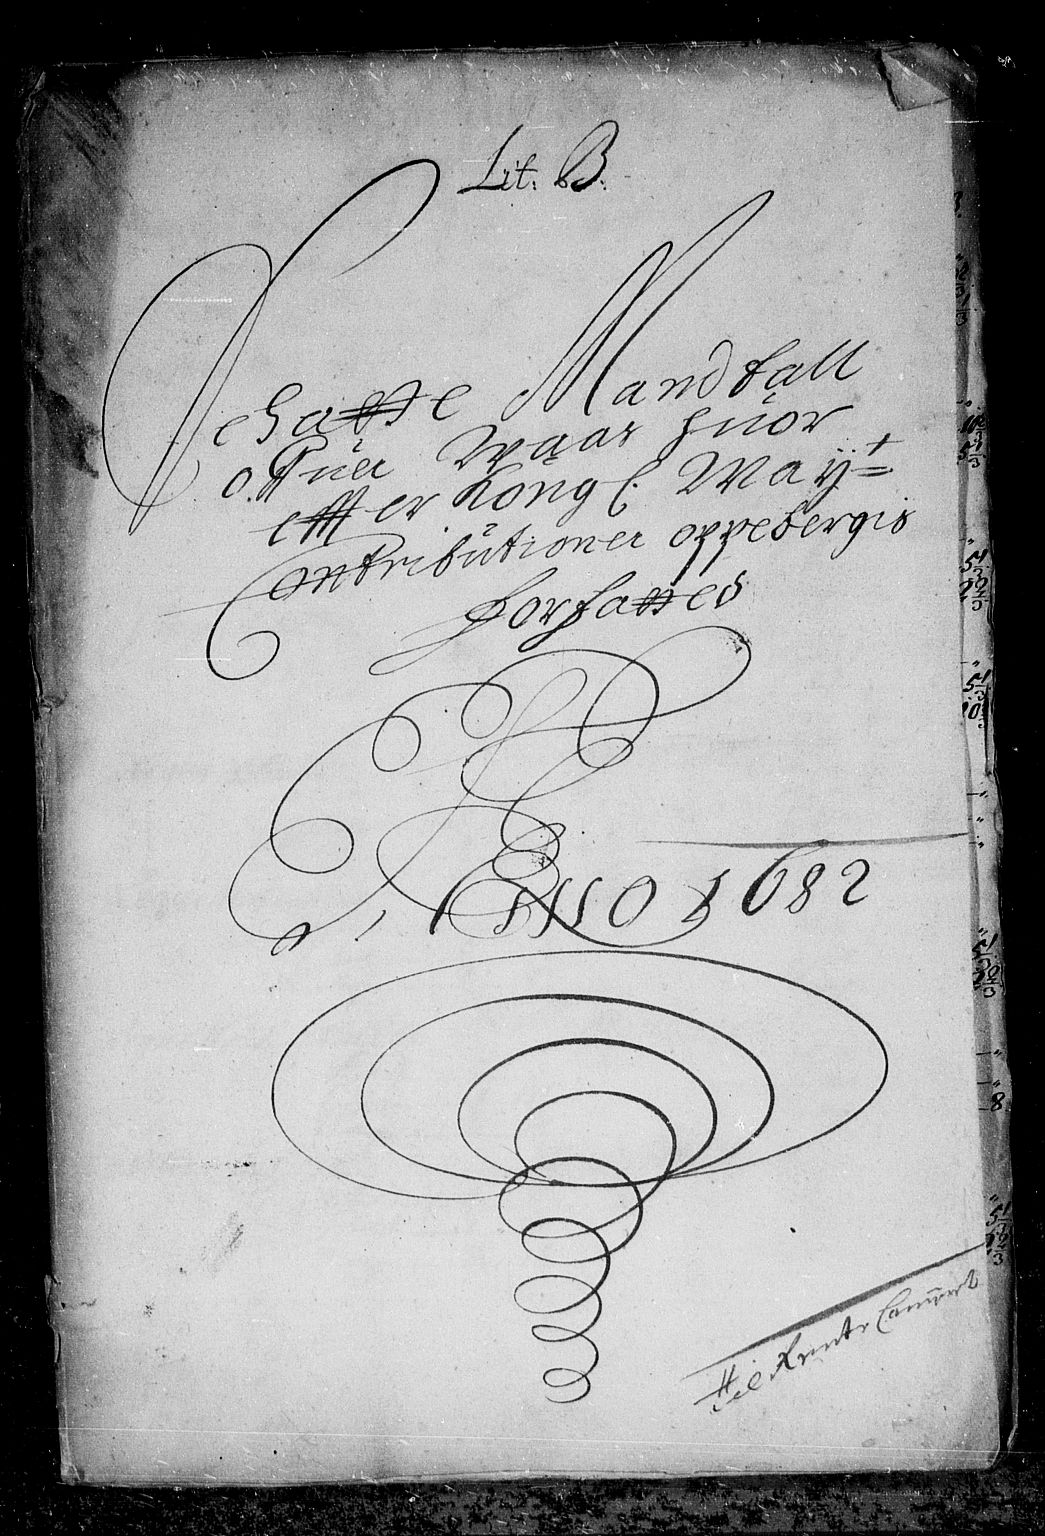 Lit. B.
Schatte Mandtall
offuer Waas huor
effter Kongl: May:tz
Contributioner oppebergis
forfatted
Anno 1682
Til Rente Cammert